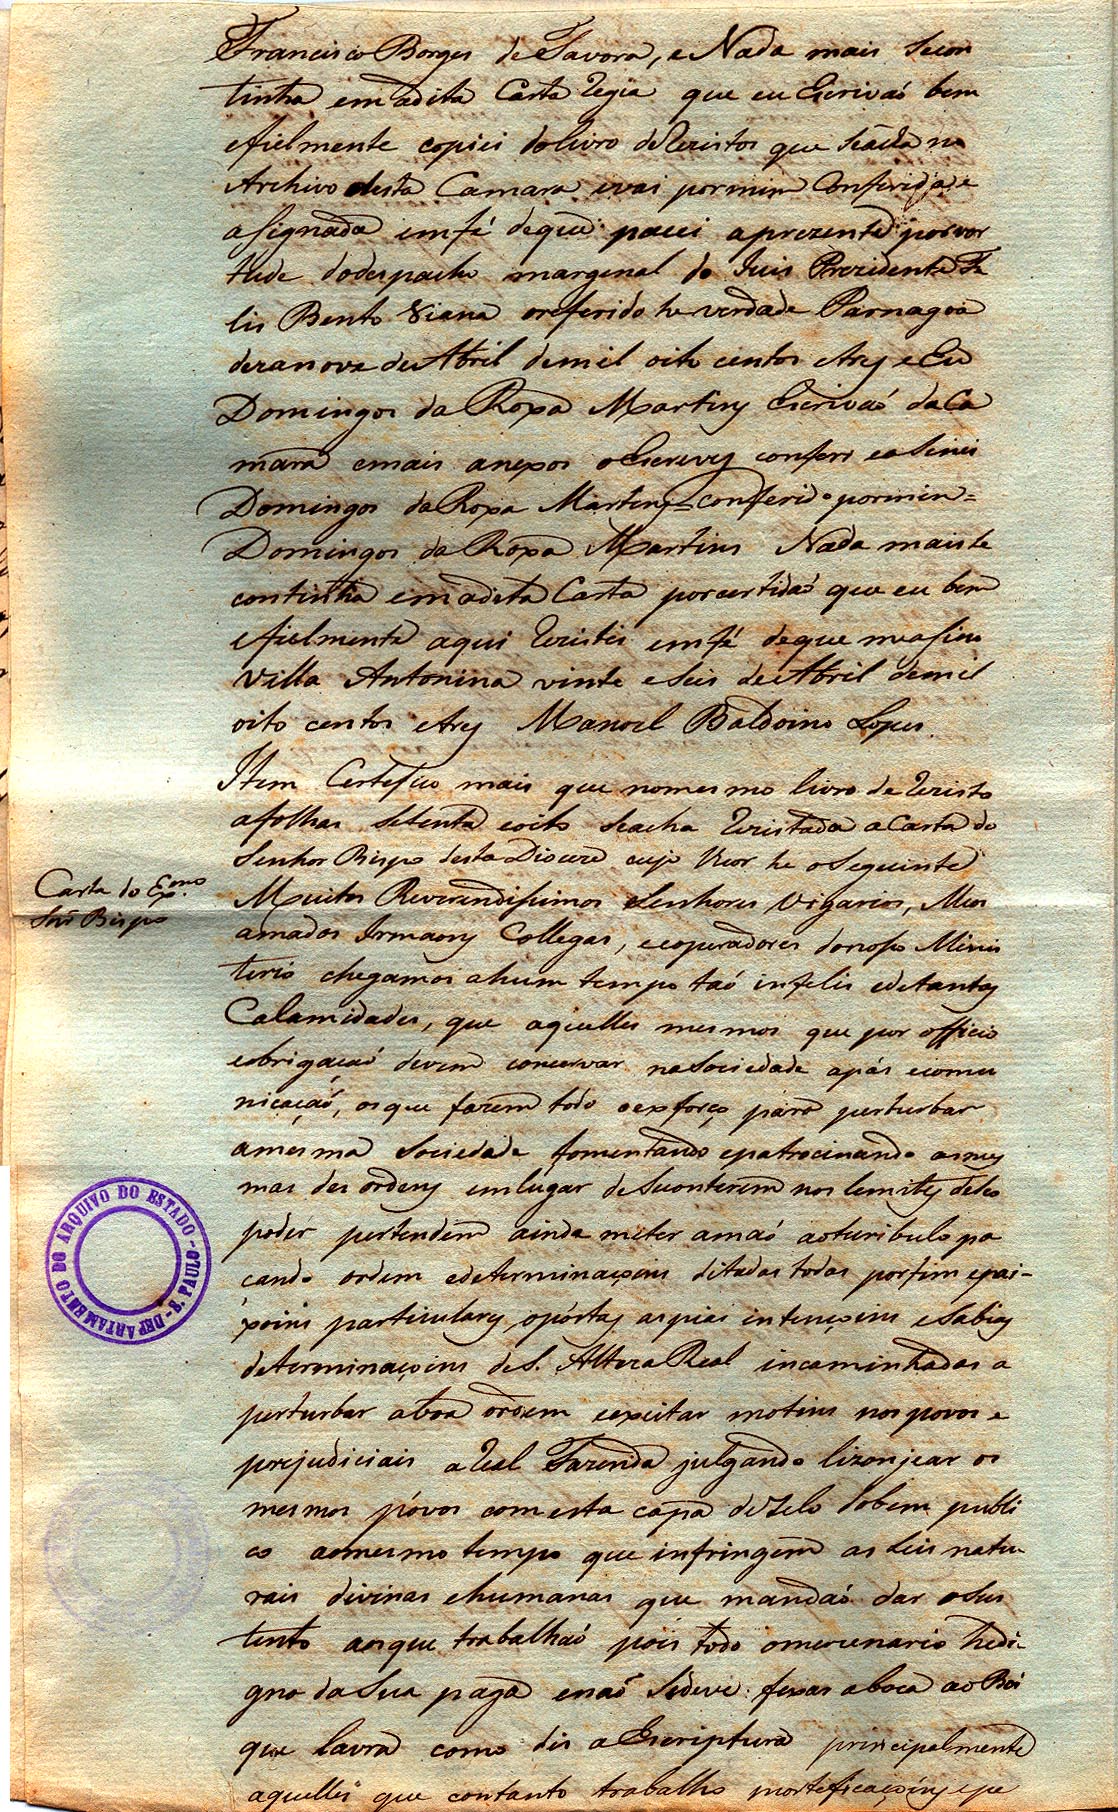 Francisco Borges de Tavora, e Nada mais Secon
tinha emadita Carta Regia que eu Escrivaõ bem
efielmente copiei do livro de Reistos que seácha no
Archivo desta Camara evai pormim Conferida, e
asignada emfé deque pacei aprezente por vor
tude dodespacho margenal do Juis Prezidente Fe
lis Bento Viana oreferido he verdade Parnagoa
dezanove de Abril demil oito centos etrez e Eu
Domingos da Roxa Martinz Escrivaõ da Ca
mara emais anexos oEscrevy conferi easinei
Domingos da Roxa Martinz = conferido pormim =
Domingos da Roxa Martins Nada maisse
continha emadeta Carta porcertidaõ que eu bem
efielmente aqui Reistei emfé deque measino
Villa Antonina vinte eseis de Abril demil
oito centos etrez Manoel Baldoino Lopes.
Item Certefico mais que nomesmo livro de Reisto
afolhas setenta eoito seacha Reistada aCarta do
Senhor Bispo desta Dioceze cujo theor he oSeguinte
Carta do Exmo
Snr Bispo
Muitos Reverendissimos Senhores Vigarios, Meos
amados Irmaons Collegas, ecoperadores donoso Minis
terio chegamos ahum tempo taõ infelis edetantas
Calamidades, que aquelles mesmos que por officio
eobrigaçaõ devem concervar nasociedade apás ecomu
nicaçaõ, os que fazem todo oexforço para perturbar
amesma Sociedade fomentando epatrocinando asmez
mas desordens emlugar deseconterem nos lemites deseo
poder pertendem ainda meter amaõ aoturibulo pa
çando ordem edeterminaçoins ditadas todas porfim epai-
xoins particulares, opóstas aspias intençoins esabias
determinaçoins de S. Alteza Real incaminhadas a
perturbar aboa ordem eexcitar motins nos povos e
prejudiciais aReal Fazenda julgando lizonjear os
mesmos póvos comesta capa dezelo dobem publi
co aomesmo tempo que infringem as Leis natu
rais divinas ehumanas que mandaõ dar osus
tento aosque trabalhaõ pois todo omercenario hedi
gno da Sua paga enaõ sedeve fexar aboca ao Boi
que lavra como dis aEscriptura principalmente
aquelles que contanto trabalho morteficaçoins epe
DEPARTAMENTO DO ARQUIVO DO ESTADO - S. PAULO -